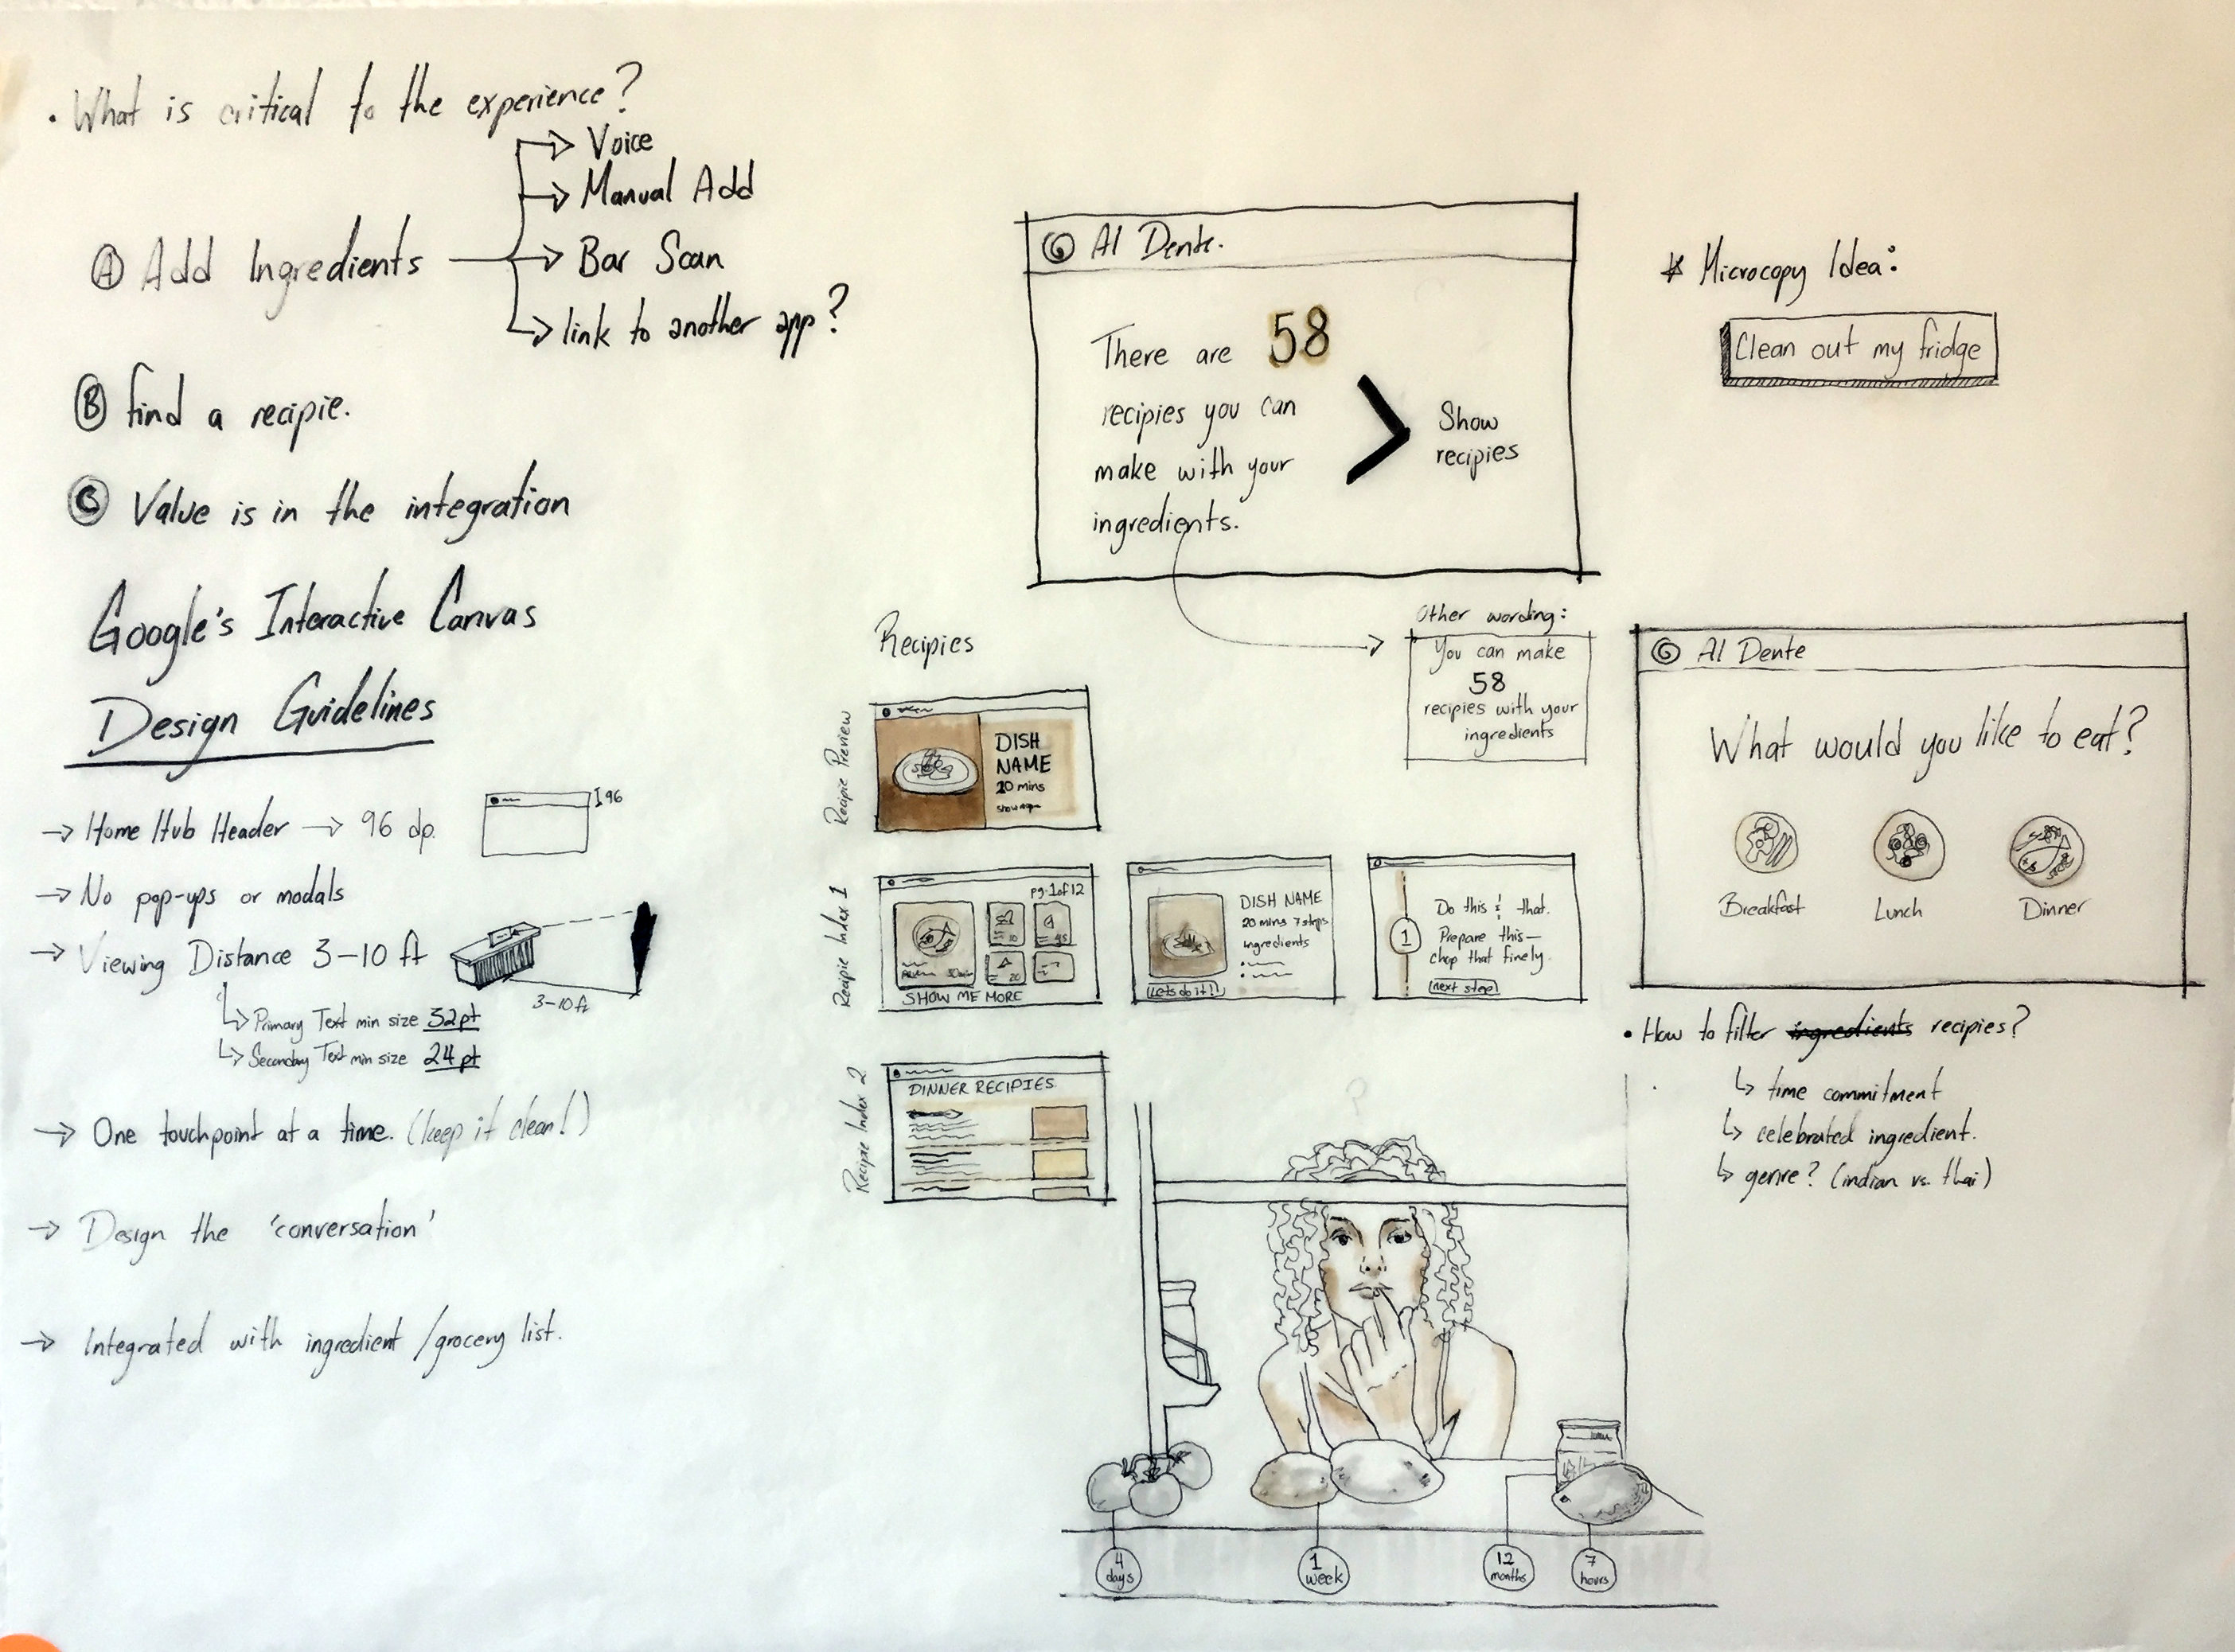 • What is critical to the experience?
Voice
Manual Add
Ⓐ Add Ingredients
Bar Scan
link to another app?
Ⓑ find a recipie.
Ⓒ Value is in the integration
Google's Interactive Canvas
Design Guidelines
→ Home Hub Header → 96 dp.
96
→ No pop-ups or modals
→ Viewing Distance 3-10 ft
3-10 ft
Primary Text min size 32pt
Secondary Text min size 24pt
→ One touchpoint at a time. (keep it clean!)
→ Design the 'conversation'
→ Integrated with ingredient/grocery list.
Al Dente.
There are 58
recipies you can
make with your
ingredients.
Show
recipies
Other wording:
You can make
58
recipies with your
ingredients
* Microcopy Idea:
Clean out my fridge
Recipies
Recipie Preview
DISH
NAME
20 mins
Recipie Index 1
pg. 1 of 12
SHOW ME MORE
DISH NAME
20 mins 7 steps
ingredients
Lets do it!
1
Do this & that.
Prepare this—
chop that finely.
next step
Recipie Index 2
DINNER RECIPIES
Al Dente
What would you like to eat?
Breakfast
Lunch
Dinner
• How to filter ingredients recipies?
time commitment
celebrated ingredient.
genre? (indian vs. thai)
?
4
days
1
week
12
months
7
hours